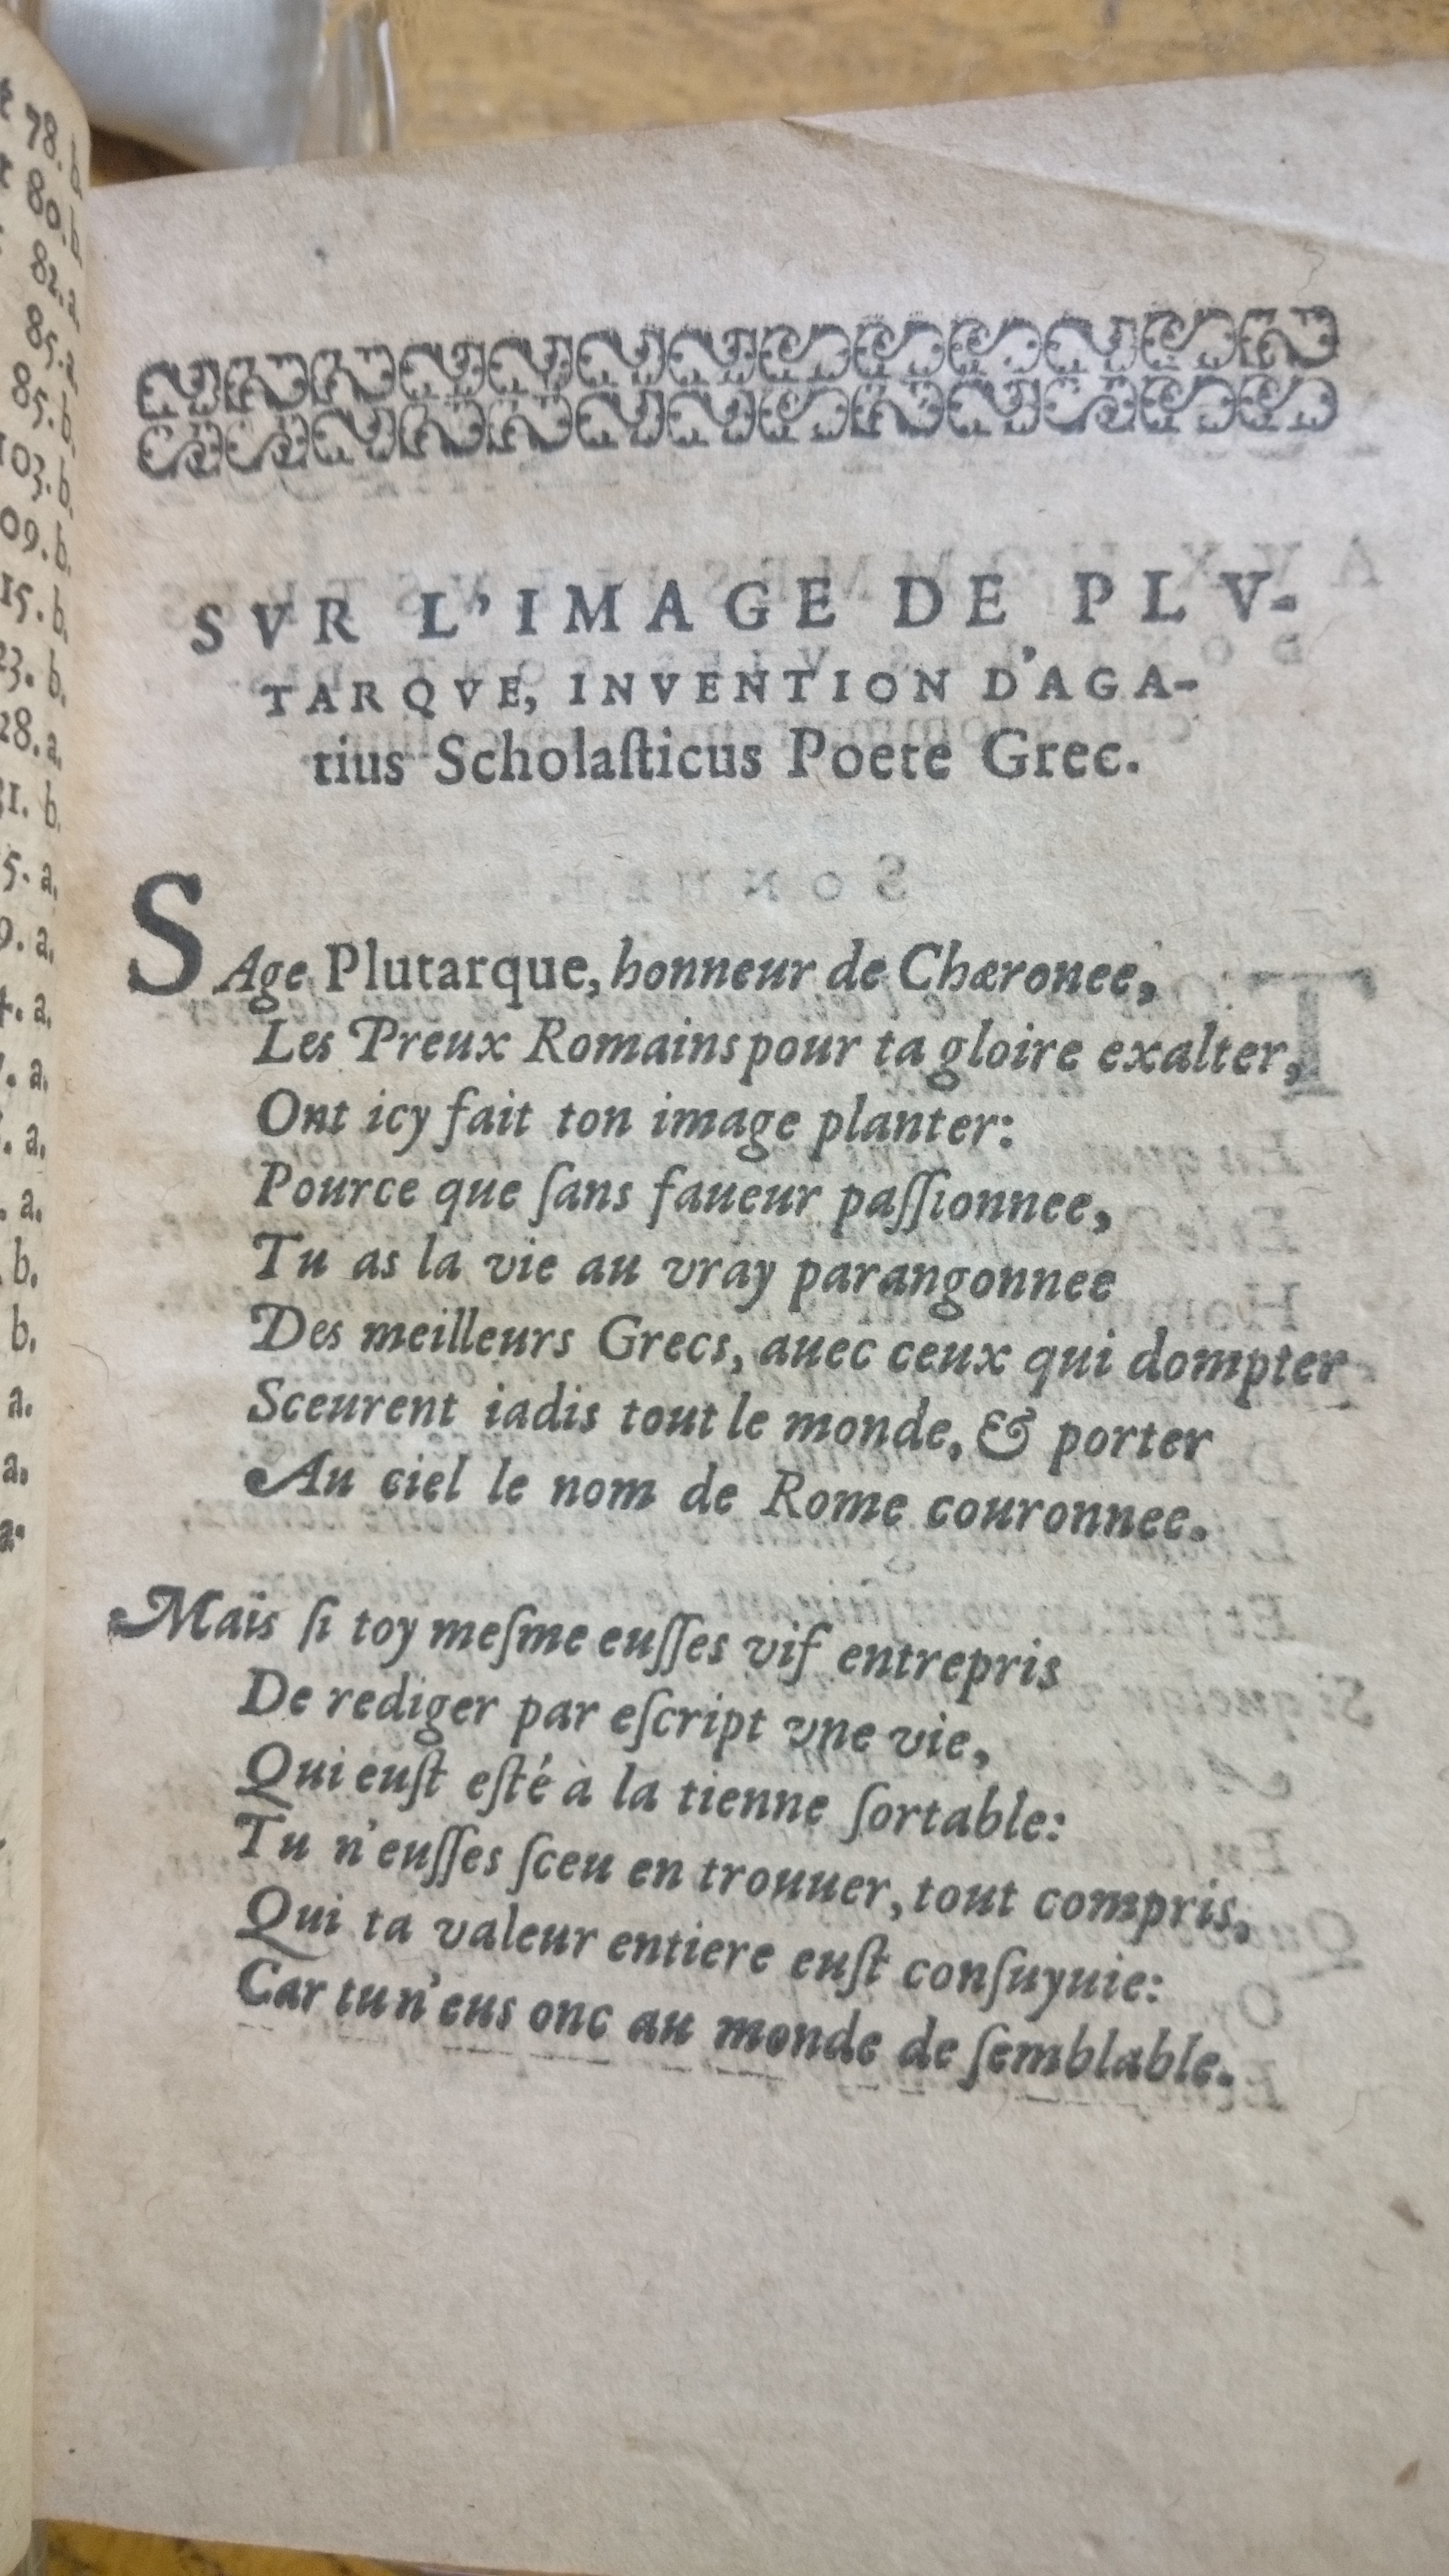 t 78. b
80. b
82. a
85. a
85. b.
103. b.
09. b.
15. b.
23. b.
28. a.
31. b.
5. a.
9. a.
4. a.
7. a.
. a.
. a.
b.
b.
a.
a.
a.
SVR L'IMAGE DE PLV-
TARQVE, INVENTION D'AGA-
tius Scholaſticus Poete Grec.
SAge Plutarque, honneur de Chæronee,
Les Preux Romains pour ta gloire exalter,
Ont icy fait ton image planter:
Pource que ſans faueur paſſionnee,
Tu as la vie au vray parangonnee
Des meilleurs Grecs, auec ceux qui dompter
Sceurent iadis tout le monde, & porter
Au ciel le nom de Rome couronnee.
Mais ſi toy meſme euſſes vif entrepris
De rediger par eſcript vne vie,
Qui euſt eſté à la tienne ſortable:
Tu n'euſſes ſceu en trouuer, tout compris,
Qui ta valeur entiere euſt conſuyuie:
Car tu n'eus onc au monde de ſemblable.